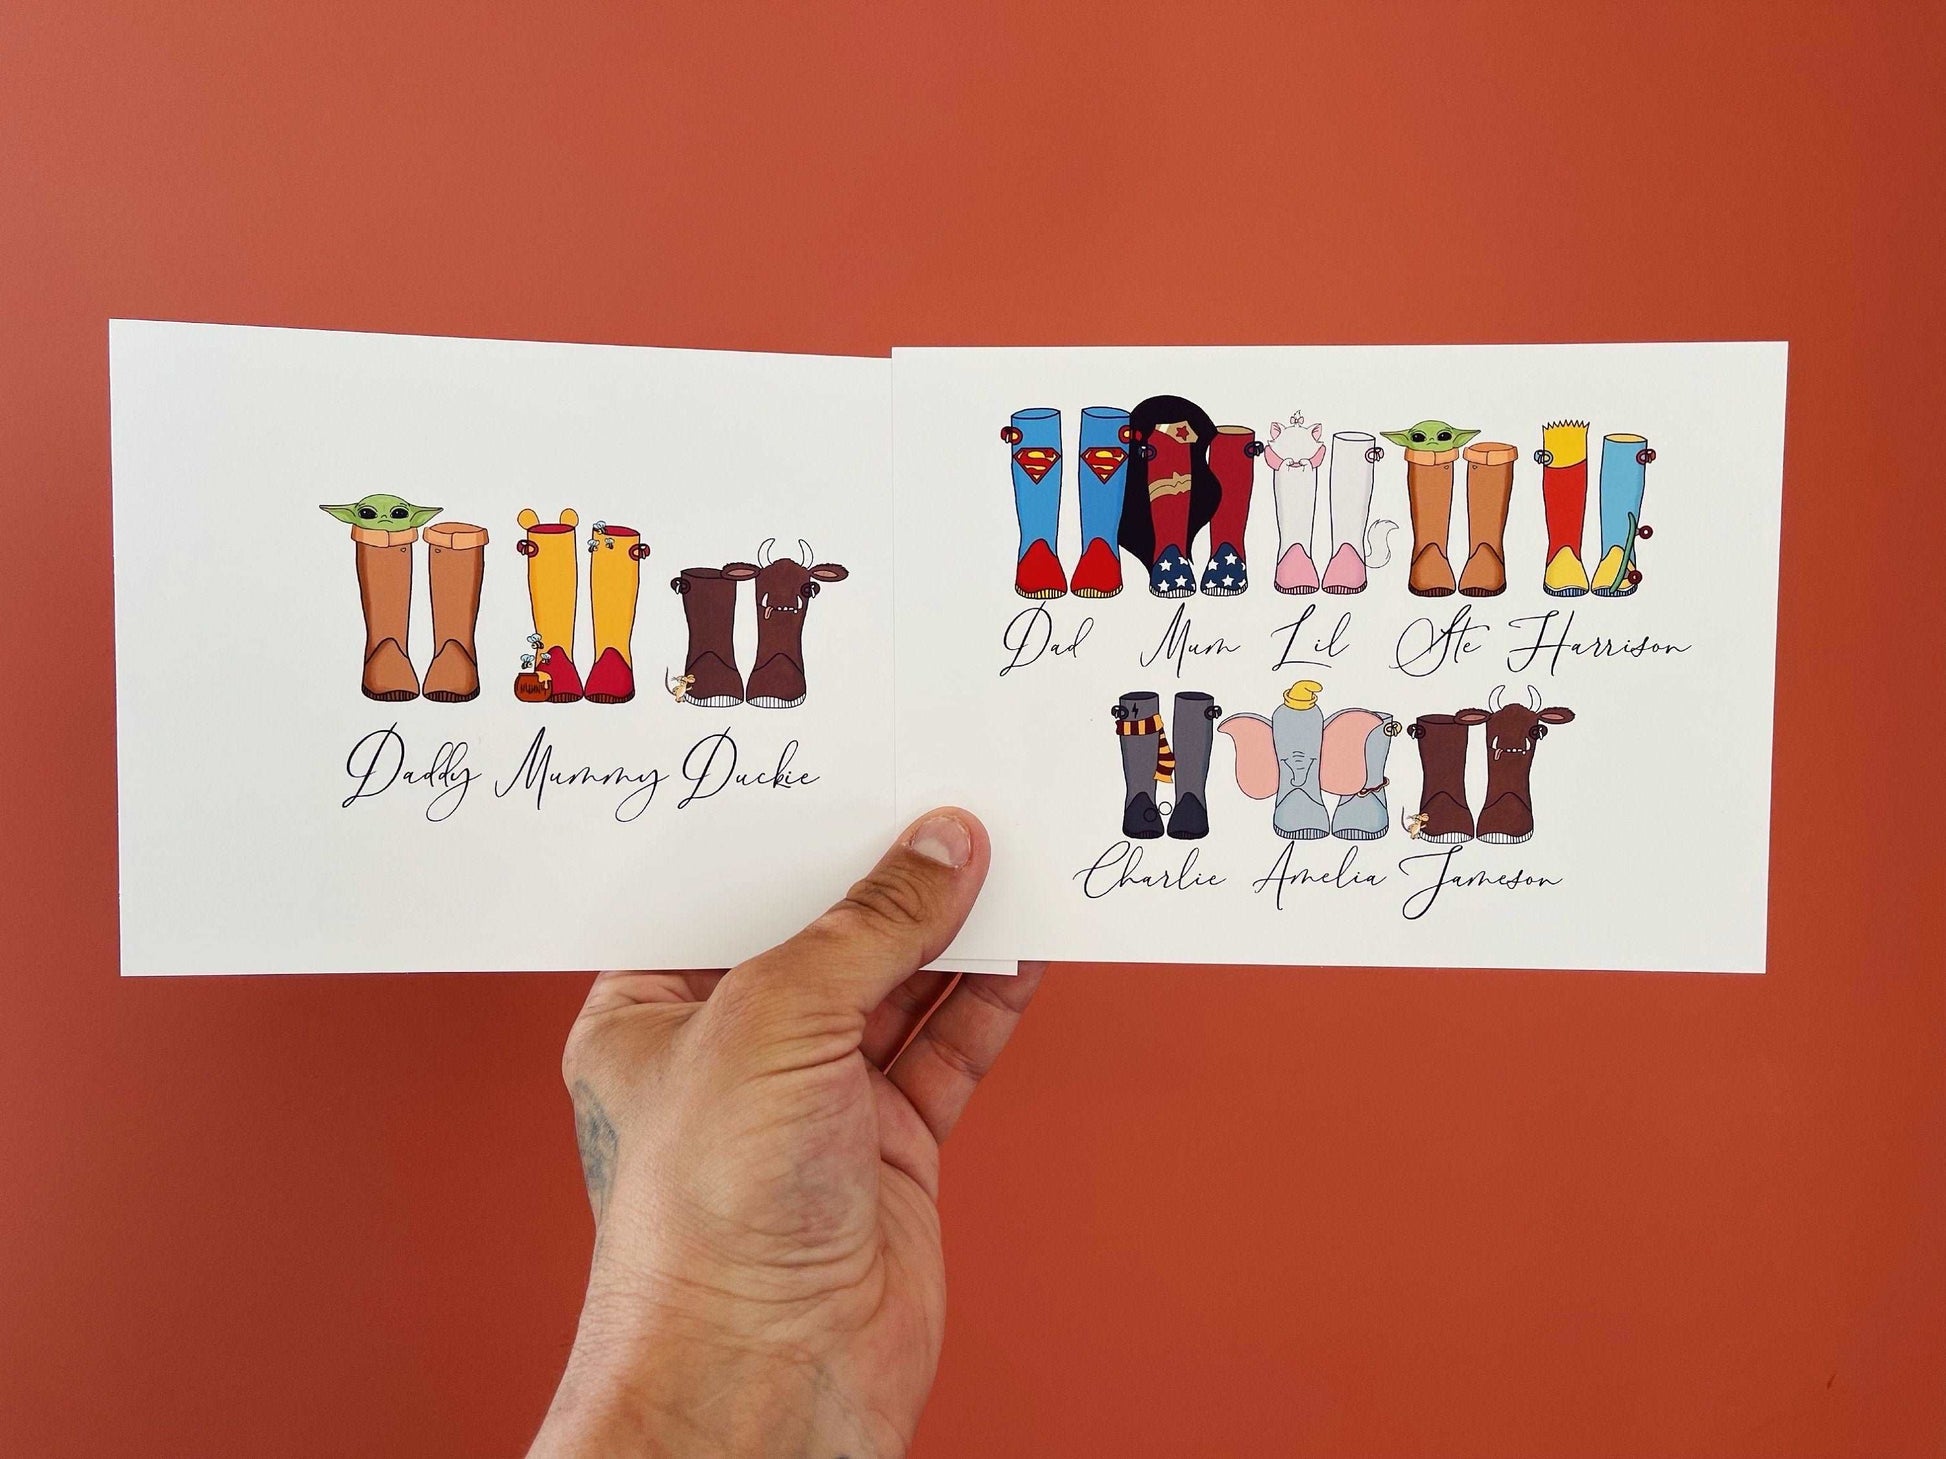 HUNNY
Daddy Mummy Duckie
Dad Mum Lil Ste Harrison
Charlie Amelia Jameson